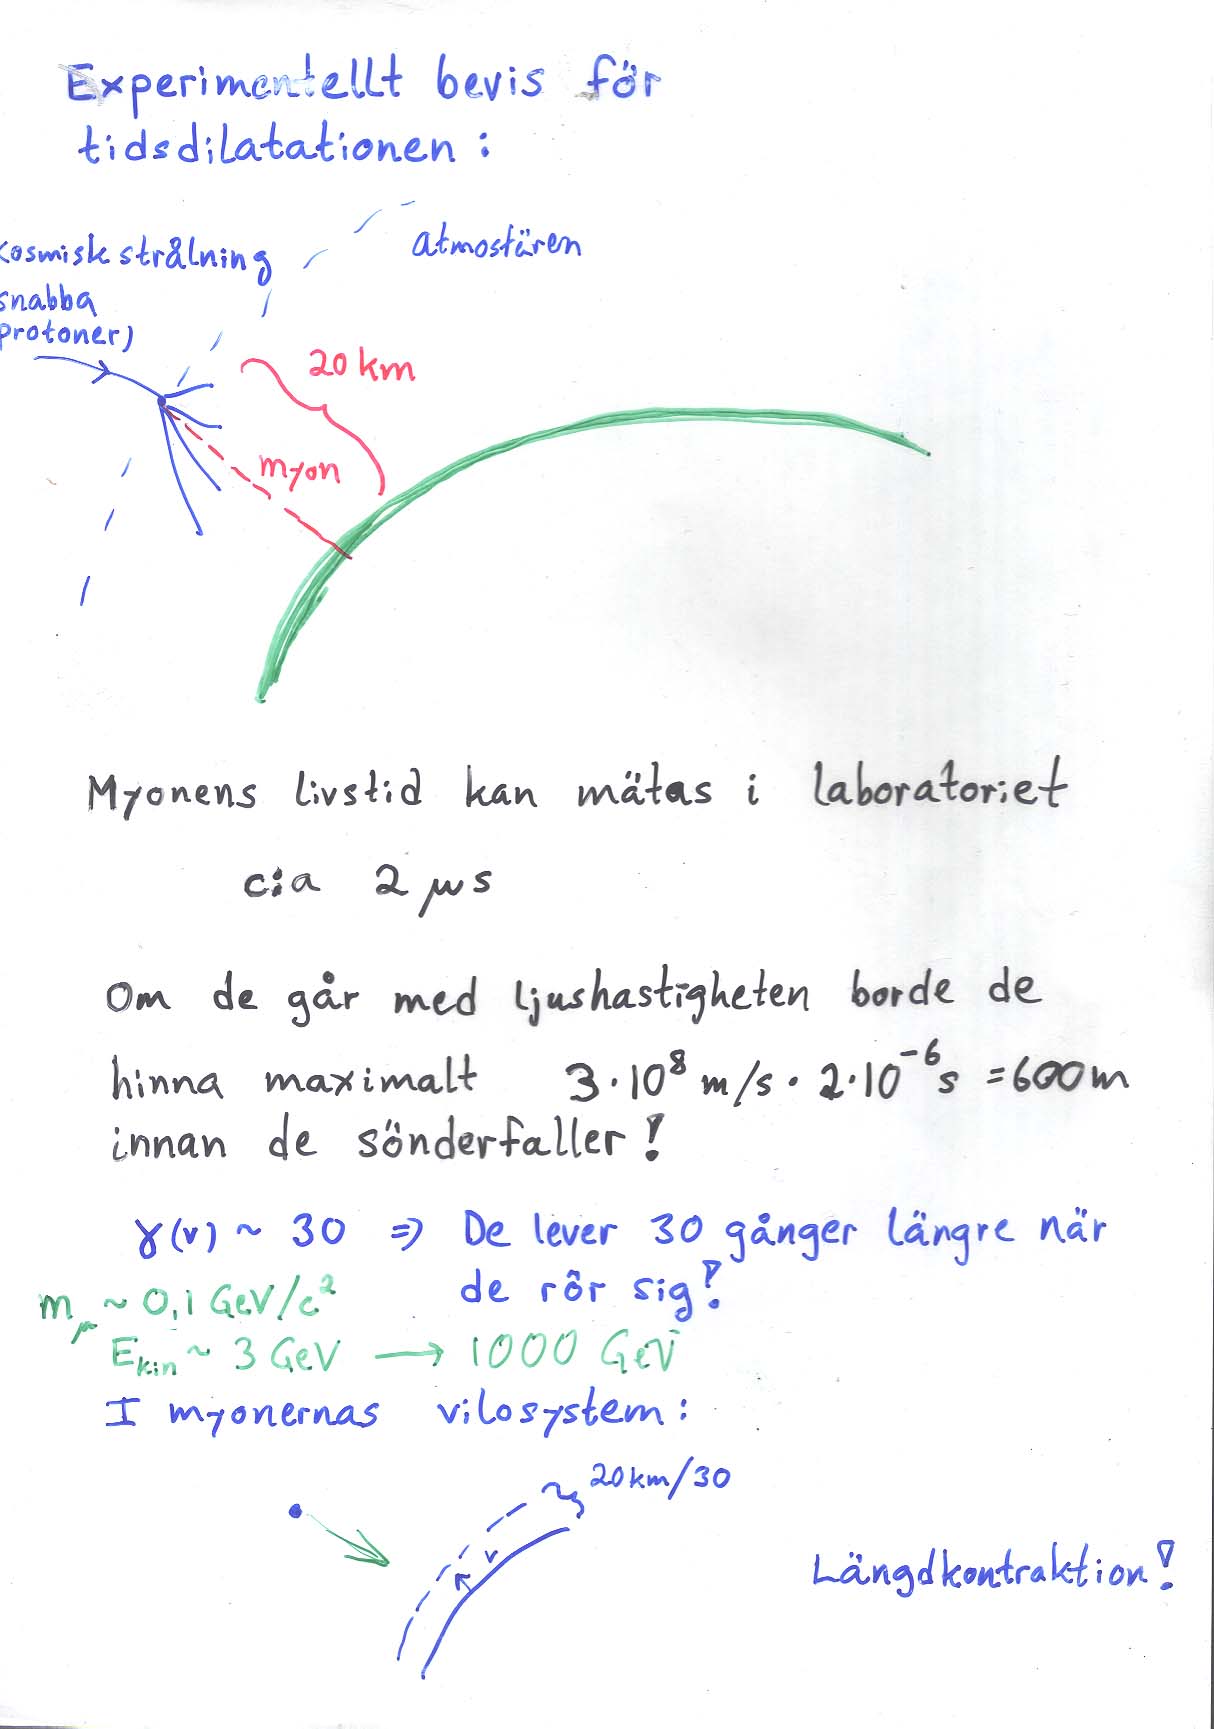 Experimentellt bevis för
tidsdilatationen:
kosmisk strålning
snabba
protoner)
atmosfären
20 km
myon
Myonens livstid kan mätas i laboratoriet
c:a 2 μs
Om de går med ljushastigheten borde de
hinna maximalt 3·10⁸ m/s · 2·10⁻⁶ s = 600 m
innan de sönderfaller!
γ(v) ~ 30 ⇒ De lever 30 gånger längre när
de rör sig!
m_μ ~ 0,1 GeV/c²
E_kin ~ 3 GeV → 1000 GeV
I myonernas vilosystem:
20 km/30
v
Längdkontraktion!